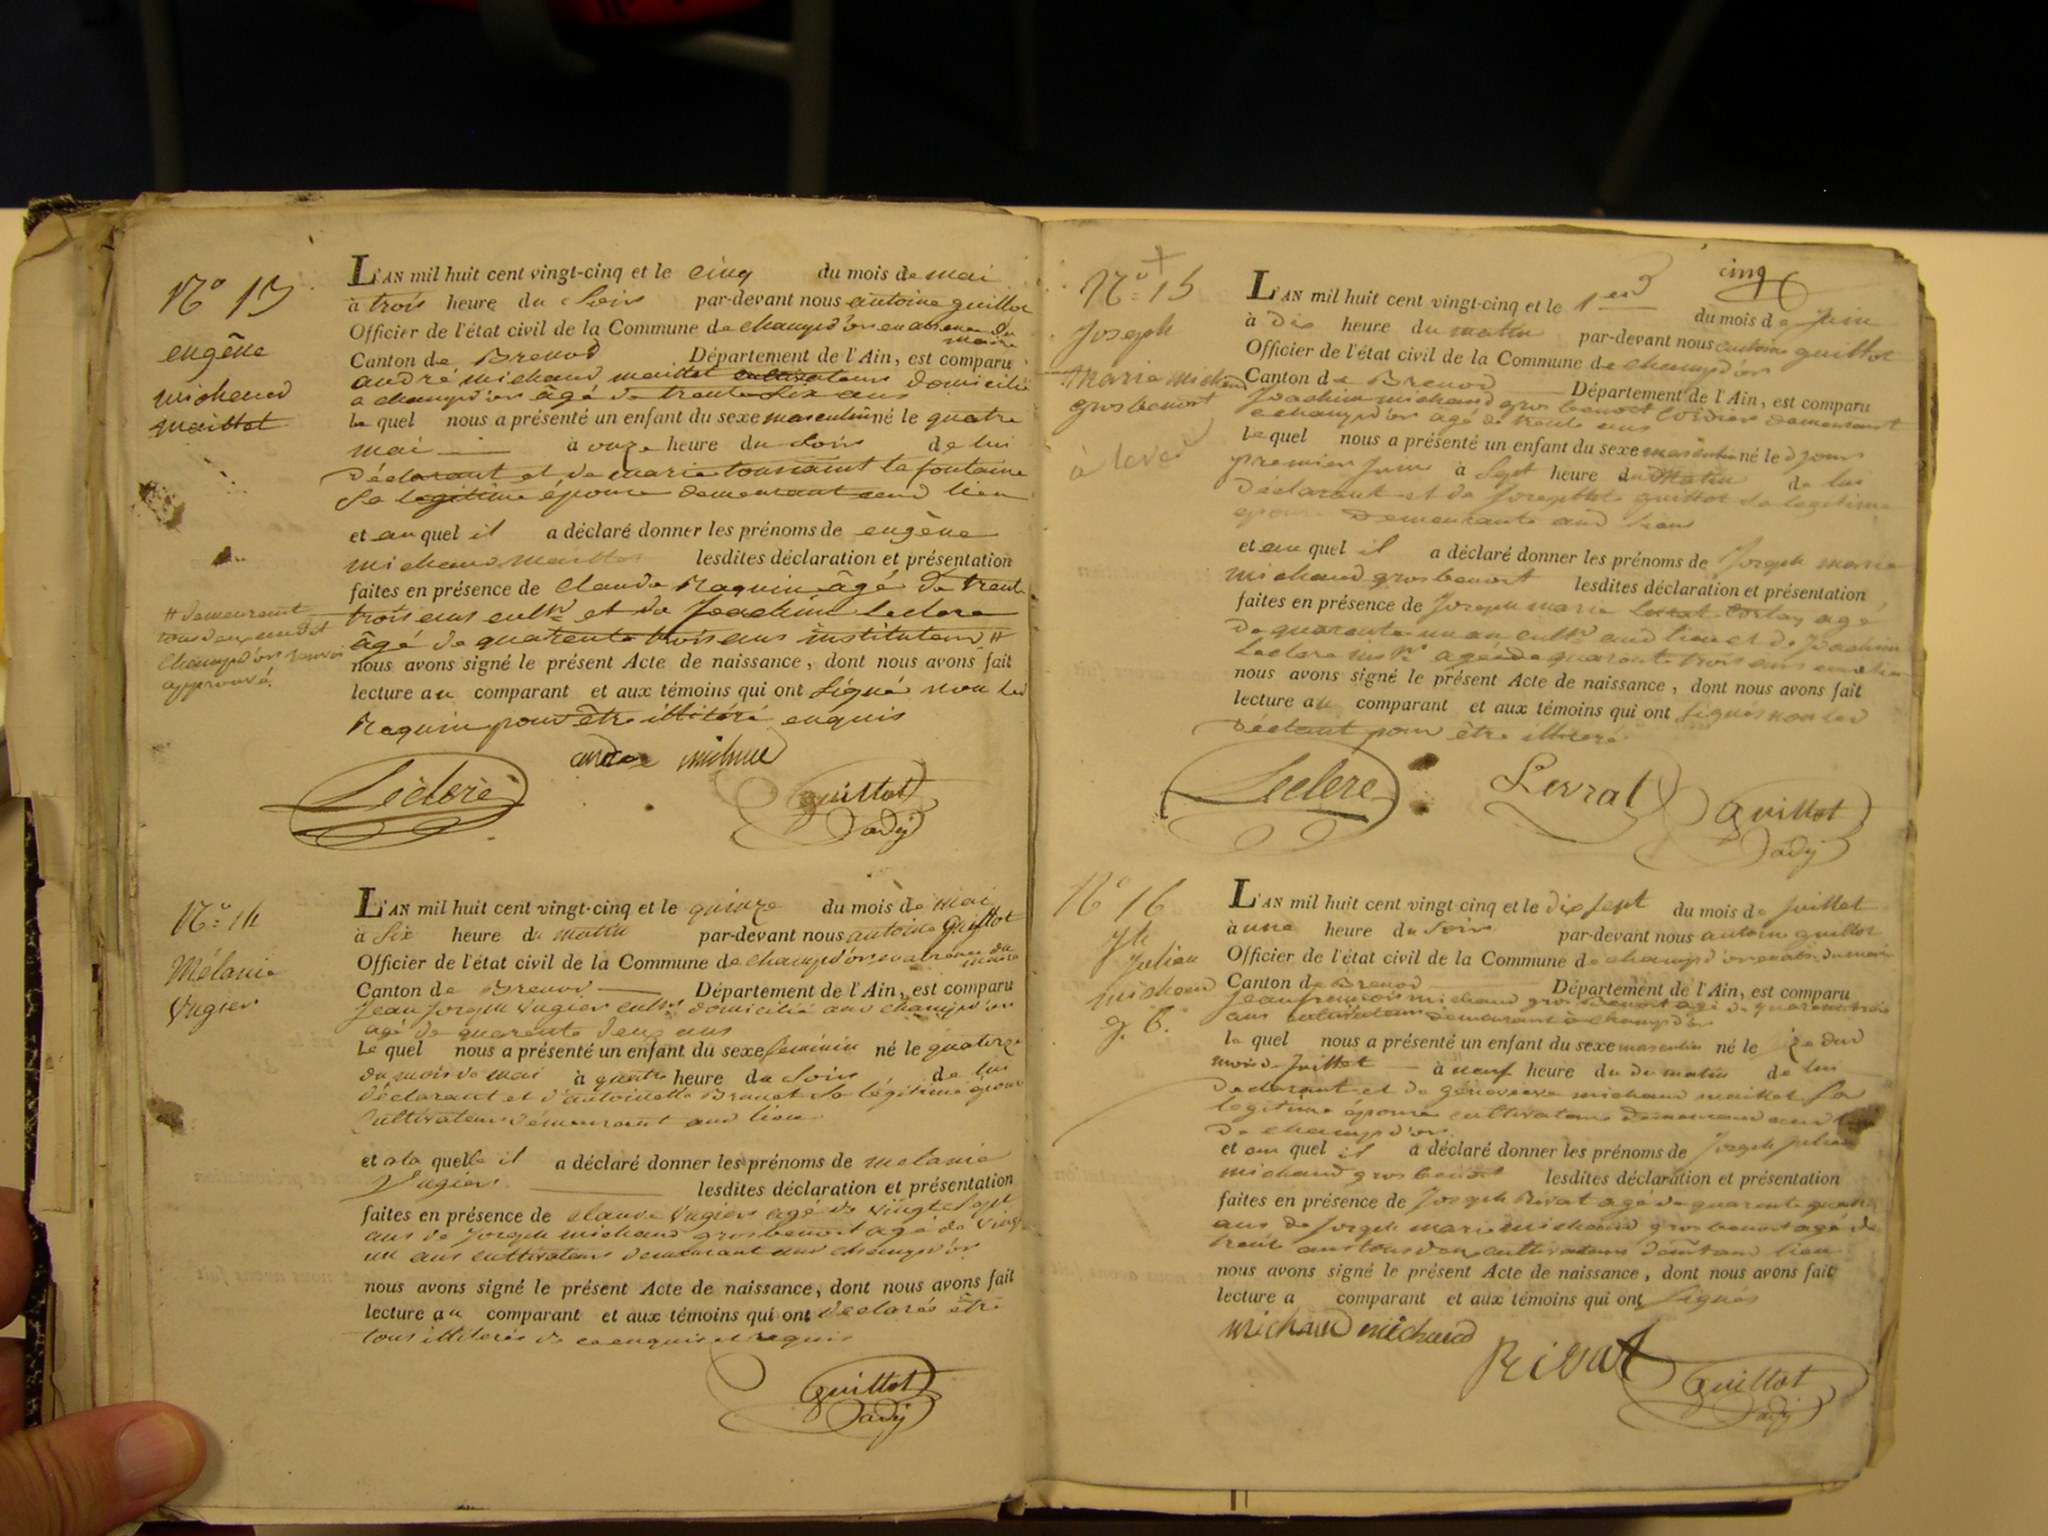 N° 13
eugêne
michaud
maillot
L'AN mil huit cent vingt-cinq et le cinq du mois de mai
à trois heure du Soir par-devant nous antoine guillot
Officier de l'état civil de la Commune de champd'or en absence du maire
Canton de Brenod Département de l'Ain, est comparu
andré michaud maillot cultivateur domicilié
a champd'or âgé de trente six ans
le quel nous a présenté un enfant du sexe masculin né le quatre
mai à onze heure du Soir de lui
déclarant et de marie toussaint la fontaine
Sa legitime épouse demeurant aud lieu
et au quel il a déclaré donner les prénoms de eugène
michaud maillot lesdites déclaration et présentation
faites en présence de Claude Raquin âgé de trente
trois ans cultr et de Joachim Leclere
âgé de quarente trois ans instituteur #
# demeurant
tous deux audit
Champd'or renvoi
approuvé.
nous avons signé le présent Acte de naissance, dont nous avons fait
lecture au comparant et aux témoins qui ont Signé non led
Raquin pour être illitéré enquis
andre michaud
Leclere guillot
adj
N° 14
Mélanie
Vugier
L'AN mil huit cent vingt-cinq et le quinze du mois de mai
à Six heure du matin par-devant nous antoine Guillot
Officier de l'état civil de la Commune de champd'or en absence du maire
Canton de Brenod Département de l'Ain, est comparu
Jean Joseph Vugier cultr domicilié aud champd'or
agé de quarente deux ans
Le quel nous a présenté un enfant du sexe feminin né le quatorze
du mois de mai à quatre heure du Soir de lui
déclarant et d'antoinette Brunet Sa légitime épouse
Cultivateurs demeurant aud lieu
et a la quelle il a déclaré donner les prénoms de melanie
Vugier lesdites déclaration et présentation
faites en présence de claude Vugier agé de vingt Sept
ans de Joseph michaud grosbenoit agé de vingt
un ans cultivateurs demeurant aud champd'or
nous avons signé le présent Acte de naissance, dont nous avons fait
lecture au comparant et aux témoins qui ont declarés être
tous illiterés de ce enquis et requis
guillot
adj
cinq
N° 15
Joseph
Marie michaud
grosbenoit
à levé
L'AN mil huit cent vingt-cinq et le 1er du mois de Juin
à Dix heure du matin par-devant nous antoine guillot
Officier de l'état civil de la Commune de champd'or
Canton de Brenod Département de l'Ain, est comparu
Joachim michaud gros benoit demeurant
a champd'or agé de trente ans
le quel nous a présenté un enfant du sexe masculin né le
premier Juin à Sept heure du Matin de lui
déclarant et de Josephte guillot Sa legitime
epouse demeurante aud lieu
et au quel il a déclaré donner les prénoms de Joseph marie
michaud grosbenoit lesdites déclaration et présentation
faites en présence de Joseph marie Levrat agé
de quarente un an cultr aud lieu et de Joachim
Leclere instr agé de quarante trois ans
nous avons signé le présent Acte de naissance, dont nous avons fait
lecture au comparant et aux témoins qui ont Signés non led
Déclarant pour être illiteré
Leclere Levrat guillot
adj
N° 16
Jh
Julien
michaud
g. B.
L'AN mil huit cent vingt-cinq et le dix sept du mois de Juillet
à une heure du Soir par-devant nous antoine guillot
Officier de l'état civil de la Commune de champd'or en abs. du maire
Canton de Brenod Département de l'Ain, est comparu
Jean françois michaud gros Benoit agé de quarente trois
ans cultivateur demeurant à champd'or
le quel nous a présenté un enfant du sexe masculin né le
mois de Juillet à neuf heure du du matin de lui
declarant et de géneviève michaud maillot Sa
legitime épouse cultivateurs demeurant aud
de champd'or
et au quel il a déclaré donner les prénoms de Joseph Julien
michaud gros benoit lesdites déclaration et présentation
faites en présence de Joseph Rivat agé de quarente quatre
ans de Joseph marie michaud gros benoit agé de
trente ans tous deux cultivateurs aud lieu
nous avons signé le présent Acte de naissance, dont nous avons fait
lecture a comparant et aux témoins qui ont Signés
michaud michaud
Rivat guillot
adj